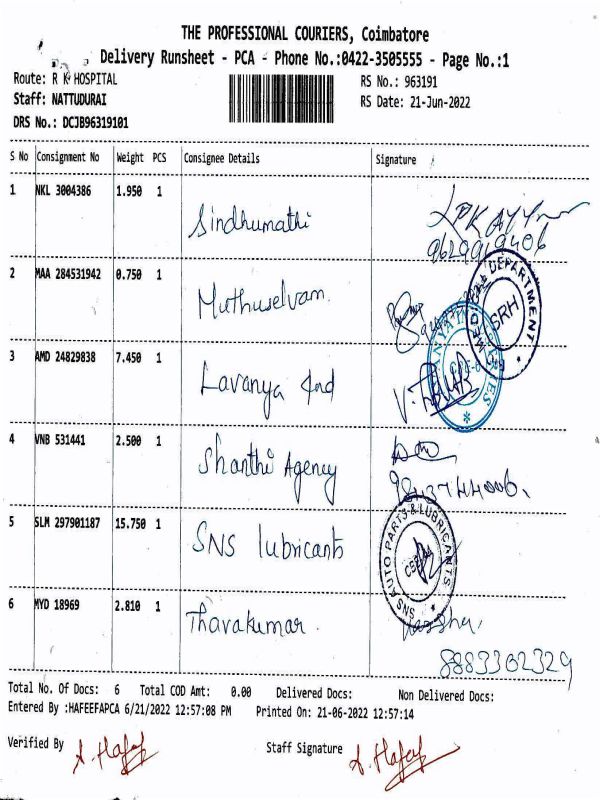 THE PROFESSIONAL COURIERS, Coimbatore
Delivery Runsheet - PCA - Phone No.:0422-3505555 - Page No.:1
Route: R K HOSPITAL
RS No.: 963191
Staff: NATTUDURAI
RS Date: 21-Jun-2022
DRS No.: DCJB96319101
S No Consignment No Weight PCS Consignee Details Signature
1 NKL 3004386 1.950 1 Sindhumathi
9629919406
2 MAA 284531942 0.750 1 Muthuselvam
MED DEPARTMENT
SRH
3 AMD 24829838 7.450 1 Lavanya Ind
4 VNB 531441 2.500 1 Shanthi Agency
5 SLM 297901187 15.750 1 SNS lubricants
SNS AUTO PARTS & LUBRICANTS
6 MYD 18969 2.810 1 Thavakumar
8883302329
Total No. Of Docs: 6 Total COD Amt: 0.00 Delivered Docs: Non Delivered Docs:
Entered By :HAFEEFAPCA 6/21/2022 12:57:08 PM Printed On: 21-06-2022 12:57:14
Verified By Staff Signature